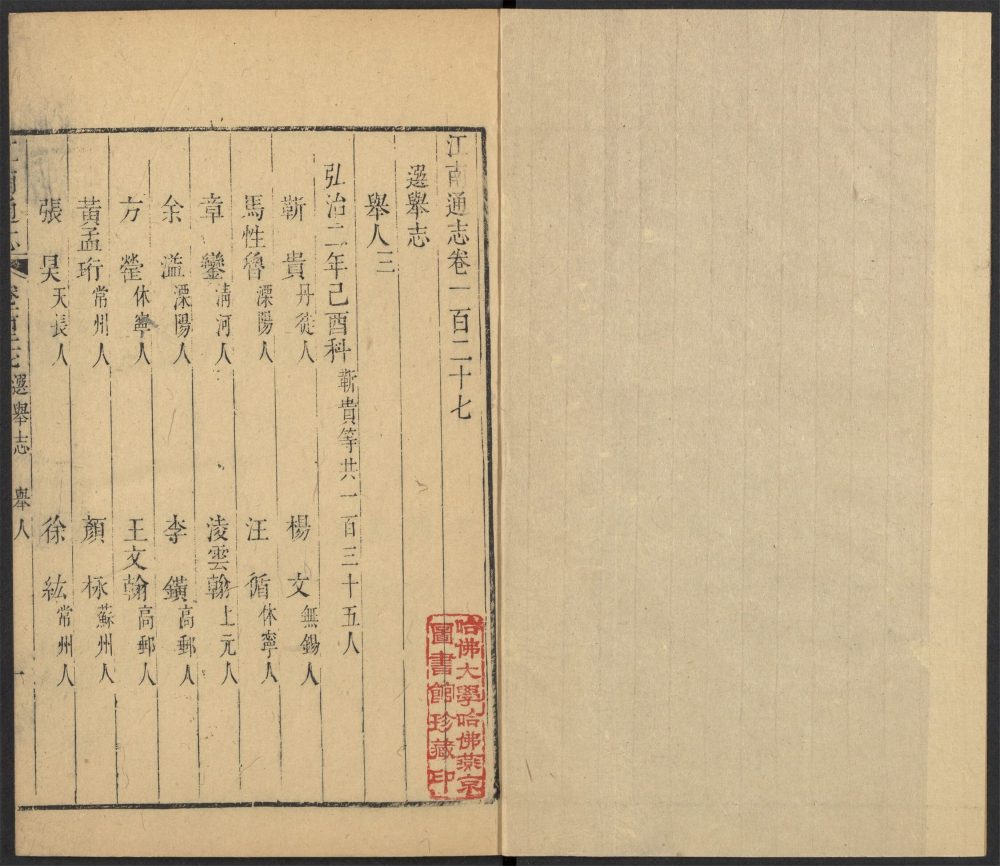 江南通志卷一百二十七
選舉志
舉人三
弘治二年己酉科靳貴等共一百三十五人
靳貴丹徒人 楊文無錫人
馬性魯溧陽人 汪循休寧人
章鑾清河人 淩雲翰上元人
余溢溧陽人 李鐄高郵人
方瑩休寧人 王文翰高郵人
黃孟珩常州人 顏栐蘇州人
張昊天長人 徐紘常州人
江南通志 選舉志 舉人 一
哈佛大學哈佛燕京
圖書館珍藏印